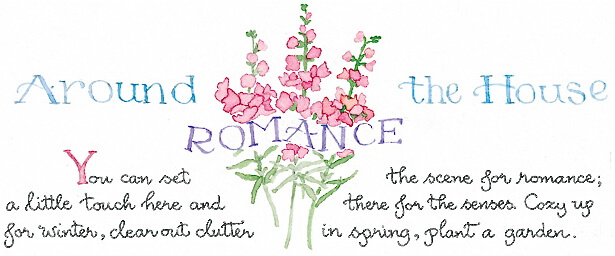 Around the House
ROMANCE
You can set the scene for romance;
a little touch here and there for the senses. Cozy up
for winter, clear out clutter in spring, plant a garden.